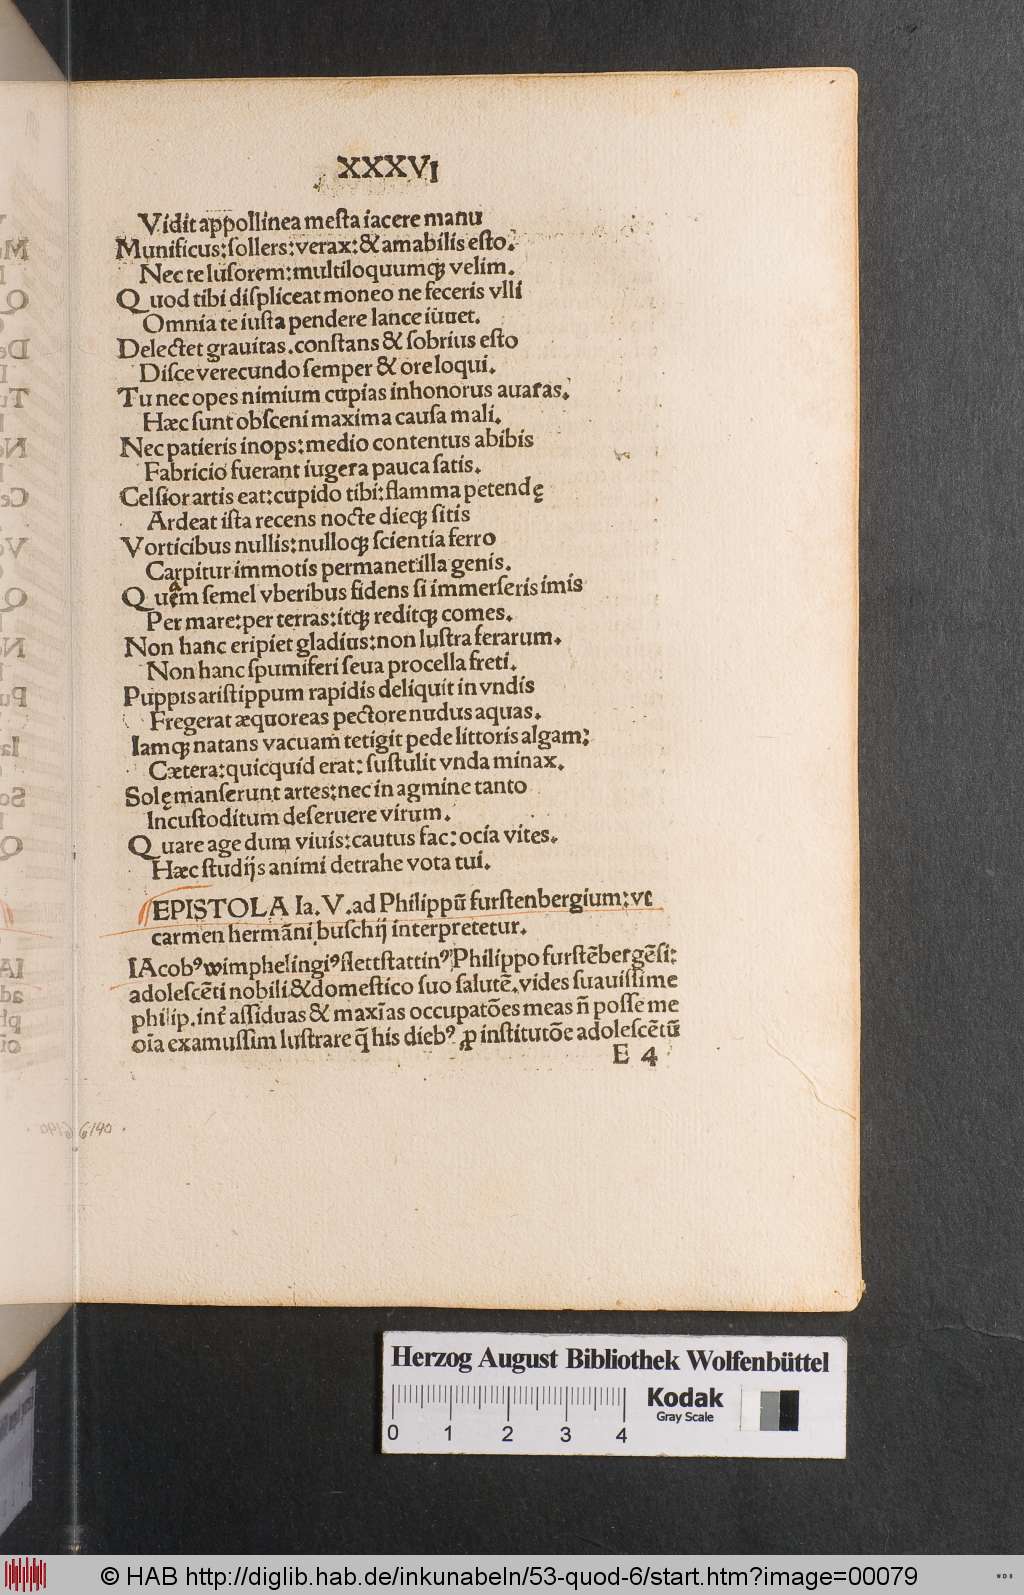 XXXVI
Vidit appollinea mesta iacere manu
Munificus: sollers: verax: & amabilis esto.
Nec te lusorem: multiloquumqȝ velim.
Quod tibi displiceat moneo ne feceris vlli
Omnia te iusta pendere lance iuuet.
Delectet grauitas. constans & sobrius esto
Disce verecundo semper & ore loqui.
Tu nec opes nimium cupias inhonorus auaras.
Hæc sunt obsceni maxima causa mali.
Nec patieris inops: medio contentus abibis
Fabricio fuerant iugera pauca satis.
Celsior artis eat: cupido tibi: flamma petendę
Ardeat ista recens nocte dieqȝ sitis
Vorticibus nullis: nulloqȝ scientia ferro
Carpitur immotis permanet illa genis.
Quęm semel vberibus fidens si immerseris imis
Per mare: per terras: itqȝ reditqȝ comes.
Non hanc eripiet gladius: non lustra ferarum.
Non hanc spumiferi seua procella freti.
Puppis aristippum rapidis deliquit in vndis
Fregerat æquoreas pectore nudus aquas.
Iamqȝ natans vacuam tetigit pede littoris algam:
Cætera: quicquid erat: sustulit vnda minax.
Solę manserunt artes: nec in agmine tanto
Incustoditum deseruere virum.
Quare age dum viuis: cautus fac: ocia vites.
Hæc studijs animi detrahe vota tui.
EPISTOLA Ia. V. ad Philippū furstenbergium: vt
carmen hermāni buschij interpretetur.
IAcobꝰ wimphelingiꝰ slettstattinꝰ Philippo furstēbergēsi:
adolescēti nobili & domestico suo salutē. vides suauissime
philip. int̄ assiduas & maxīas occupatōes meas n̄ posse me
oīa examussim lustrare q̄ his diebꝰ ꝓ institutōe adolescētū
E 4
6190
Herzog August Bibliothek Wolfenbüttel
Kodak
Gray Scale
0 1 2 3 4
© HAB http://diglib.hab.de/inkunabeln/53-quod-6/start.htm?image=00079